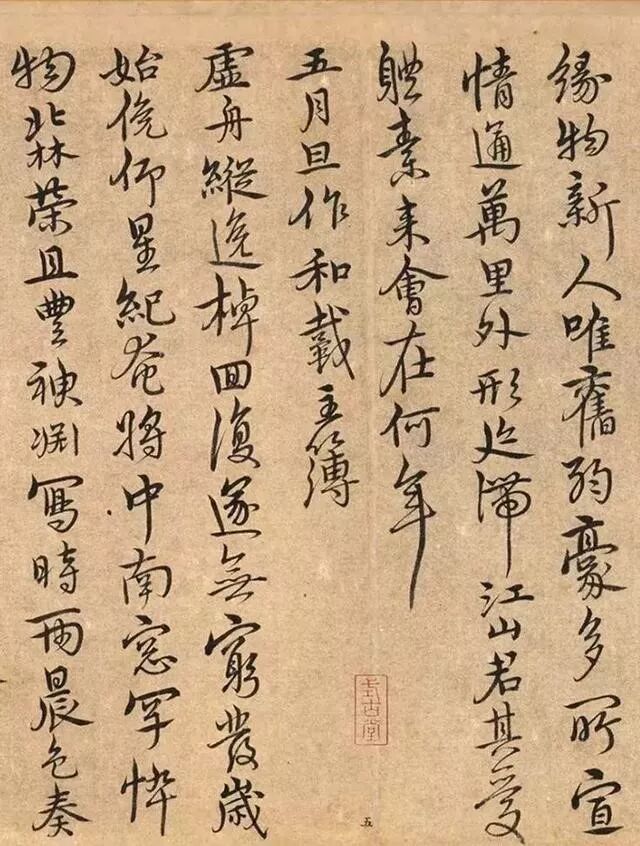 缘物新人唯舊弱豪多所宣
情通萬里外形迹滯江山君其愛
體素来會在何年
五月旦作和戴主簿
虛舟縱逸棹回復遂無窮發歲
始俛仰星紀奄將中南窓罕悴
物北林荣且豐神淵寫時雨晨色奏
五